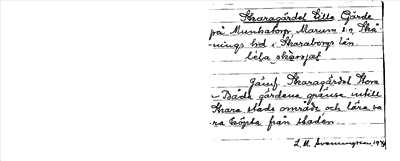 Skaragärdet Lilla Gärde
på Munkatorp, Marum sn, Skå-
nings hd i Skaraborgs län
lela skarajal
Jämf. Skaragärdet Stora
- Båda gärdena gränsa intill
Skara stads område och lära va-
ra köpta från staden.
L. M. Svenungsson, 19